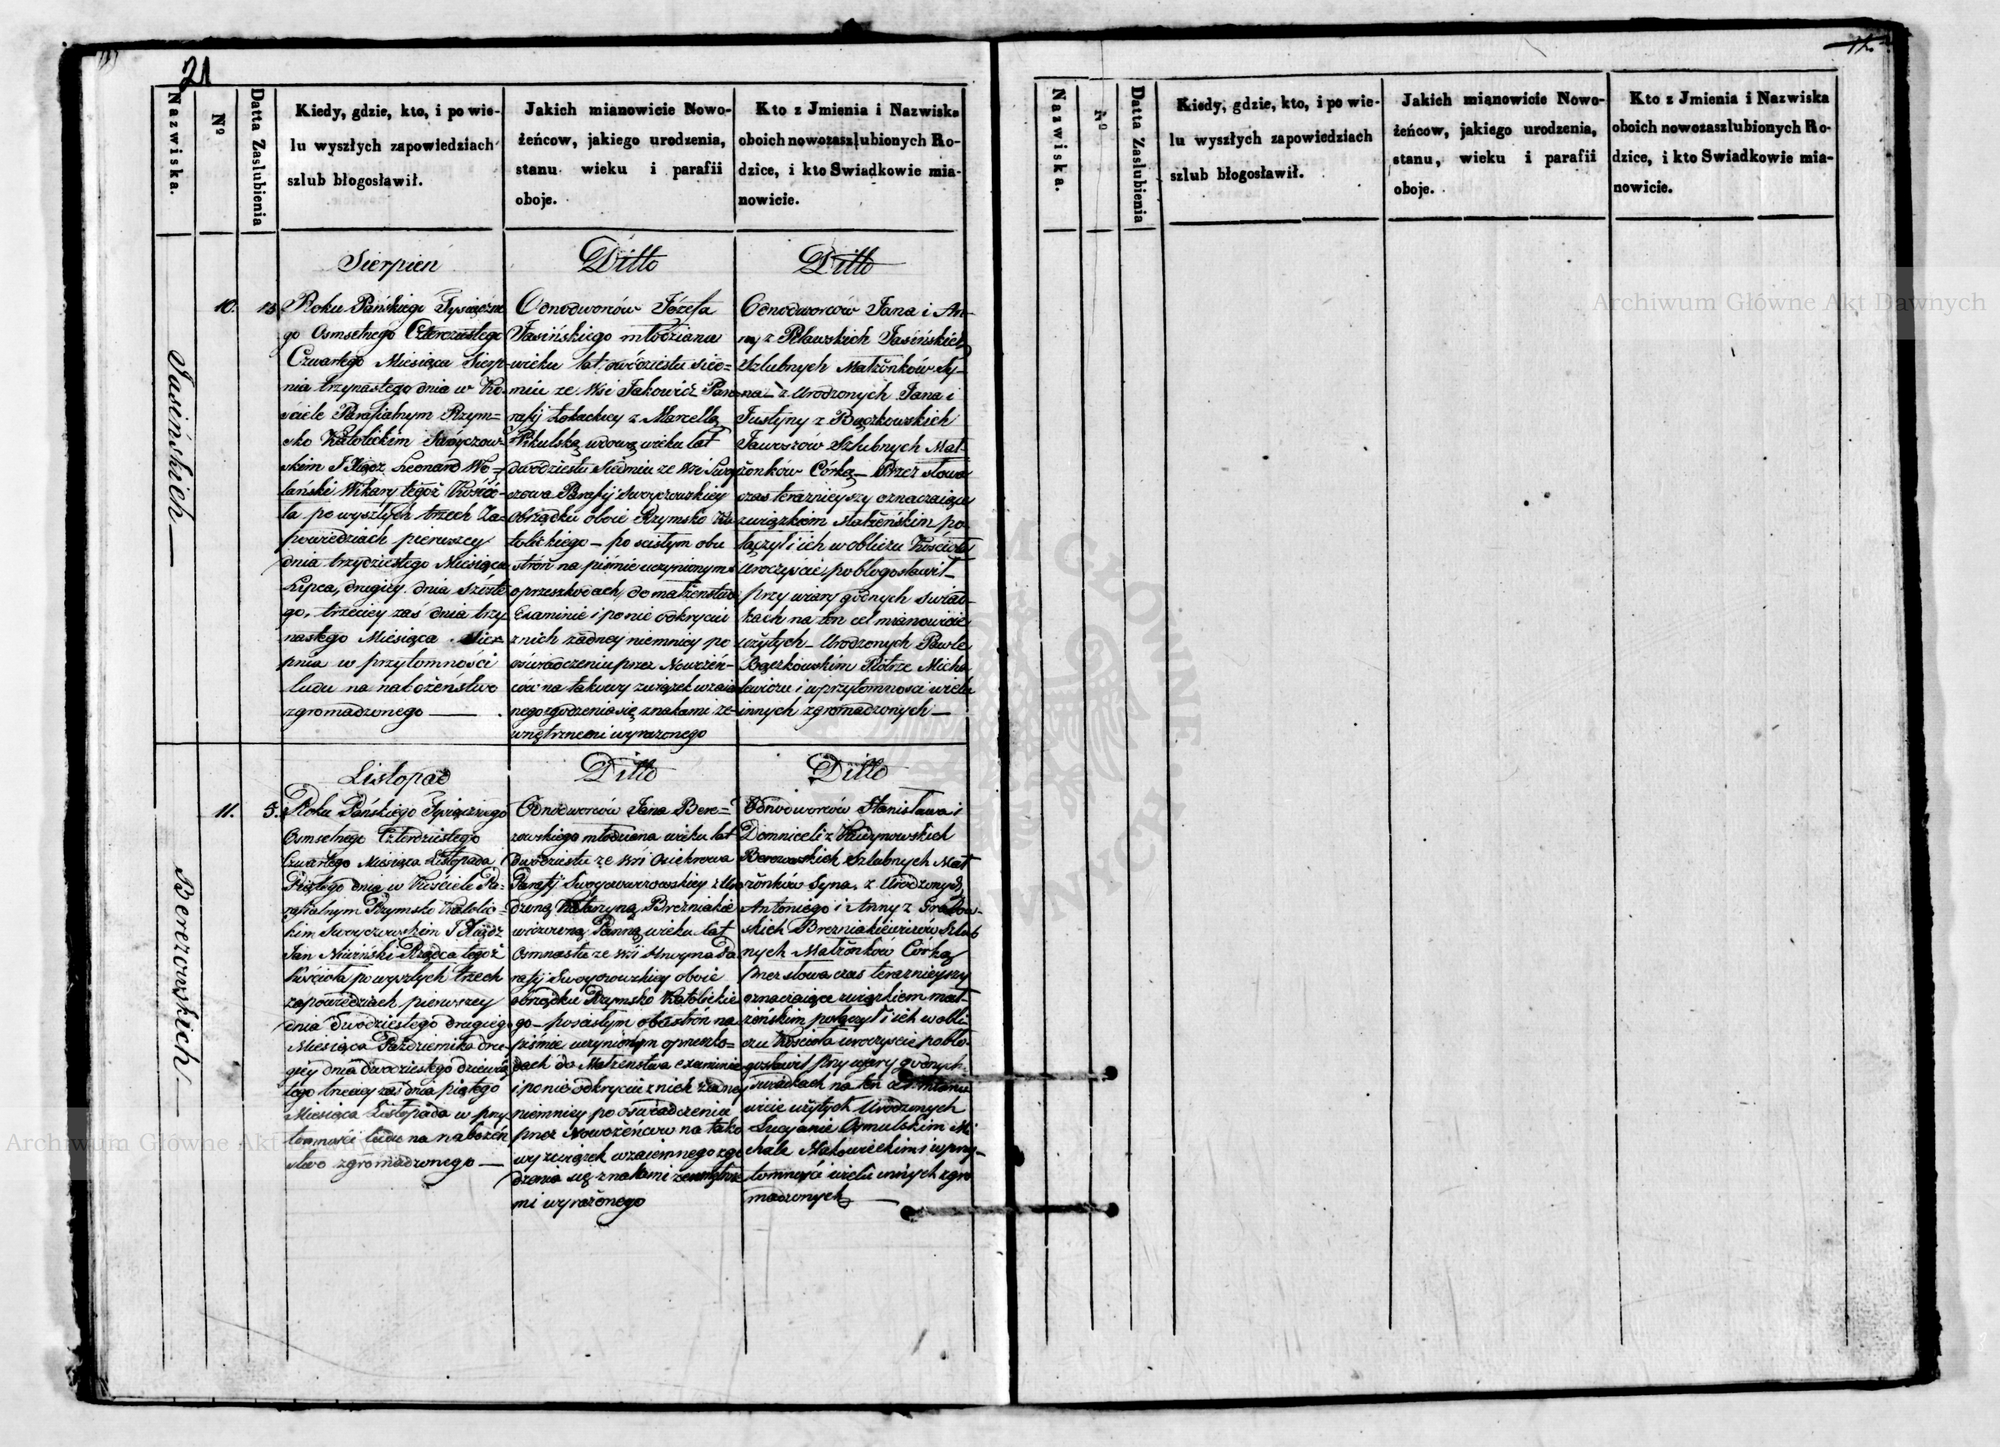 21
Nazwiska.
Nº
Datta Zaslubienia
Kiedy, gdzie, kto, i po wie-
lu wyszłych zapowiedziach
szlub błogosławił.
Jakich mianowicie Nowo-
żeńcow, jakiego urodzenia,
stanu wieku i parafii
oboje.
Kto z Jmienia i Nazwiska
oboich nowozaszlubionych Ro-
dzice, i kto Swiadkowie mia-
nowicie.
Jasińskich
10.
13.
Sierpień
Roku Pańskiego Tysiączne
go Osmsetnego Czterdziestego
Czwartego Miesiąca Sierp-
nia trzynastego dnia w Ko-
ściele Parafialnym Rzym=
sko Katolickim Swoyczow-
skim J Xiądz Leonard Wo-
lański Wikary tegoż Kościo-
ła po wyszłych trzech Za-
powiedziach pierwszey
dnia trzydziestego Miesiąca
Lipca, drugiey dnia szóste
go, trzeciey zaś dnia trzy
nastego Miesiąca Sier
pnia w przytomności
ludu na nabożeństwo
zgromadzonego
Ditto
Odnodworców Józefa
Jasińskiego młodziana
wieku lat dwódziestu sied=
miu ze Wsi Jakowicz Para
rafij Łokackiey z Marcellą
Pikulską wdową wieku lat
dwudziestu siedmiu ze Wsi Swoy
czowa Parafij Swoyczowskiey
Obrządku oboie Rzymsko Ka
tolickiego – po scisłym obu
strón na piśmie uczynionym
o przeszkodach do małżeństwa
Examinie i po nie odkryciu
z nich żadney niemniey po
oświadczeniu przez Nowożeń-
ców na takowy związek wzaie
mnego zgodzenia się znakami ze-
wnętrznemi wyrażonego
Ditto
Odnodworców Jana i An-
ny z Pławskich Jasińskich
Szlubnych Małżonków Sy-
na – z Urodzonych Jana i
Justyny z Bączkowskich
Jaworszów Szlubnych Mał-
żonków Córką – Przez słowa
czas teraznieyszy oznaczaiące
związkiem Małżeńskim po-
łączył i ich w obliczu Kościoła
Uroczyście pobłogosławił –
przy wiary godnych świad-
kach na ten cel mianowicie
użytych – Urodzonych Pawle
Bączkowskim Piotrze Micha
łowiczu i w przytomności wielu
innych zgromadzonych –
Berezowskich
11.
5.
Listopad
Roku Pańskiego Tysiącznego
Osmsetnego Czterdziestego
Czwartego Miesiąca Listopada
Piątego dnia w Kościele Pa-
rafialnym Rzymsko Katolic-
kim Swoyczowskim J Xiądz
Jan Niziński Rządca tegoż
Kościoła po wyszłych trzech
zapowiedziach pierwszey
dnia dwudziestego drugiego
Miesiąca Października dru-
giey dnia dwudziestego dziewią
tego trzeciey zaś dnia piątego
Miesiąca Listopada w przy
tomności ludu na nabożeń
stwo zgromadzonego
Ditto
Odnodworców Jana Bere=
zowskiego młodziana wieku lat
dwudziestu ze Wsi
Parafij Swoyczowskiey z Uro
dzoną Katarzyną Brezniakie
wiczówną Panną wieku lat
Osmnastu ze Wsi Pa
rafij Swoyczowskiey oboie
obrządku Rzymsko Katolickie
go – po scisłym obustrón na
piśmie uczynionym o przeszko-
dach do Małżeństwa examinie
i po nie odkryciu z nich żadney
niemniey po oświadczeniu
przez Nowożeńców na tako
wy związek wzaiemnego zgo
dzenia się znakami zewnętrzne
mi wyrażonego
Ditto
Odnodworców Stanisława i
Domniceli z
Berezowskich Szlubnych Mał
żonków Syna, z Urodzonych
Antoniego i Anny z Grabow-
skich Brezniakiewiczów Szlub
nych Małżonków Córką
przez słowa czas teraznieyszy
oznaczaiące związkiem mał-
żeńskim połączył i ich w obli-
czu Kościoła uroczyście pobło-
gosławił przy wiary godnych
świadkach na ten cel miano
wicie użytych Urodzonych
Lucyanie Osmulskim Mi
chale Makowieckim i w przy-
tomności wielu innych zgro
madzonych
Nazwiska.
Nº
Datta Zaslubienia
Kiedy, gdzie, kto, i po wie-
lu wyszłych zapowiedziach
szlub błogosławił.
Jakich mianowicie Nowo-
żeńcow, jakiego urodzenia,
stanu, wieku i parafii
oboje.
Kto z Jmienia i Nazwiska
oboich nowozaszlubionych Ro-
dzice, i kto Swiadkowie mia-
nowicie.
Archiwum Główne Akt Dawnych
Archiwum Główne Akt